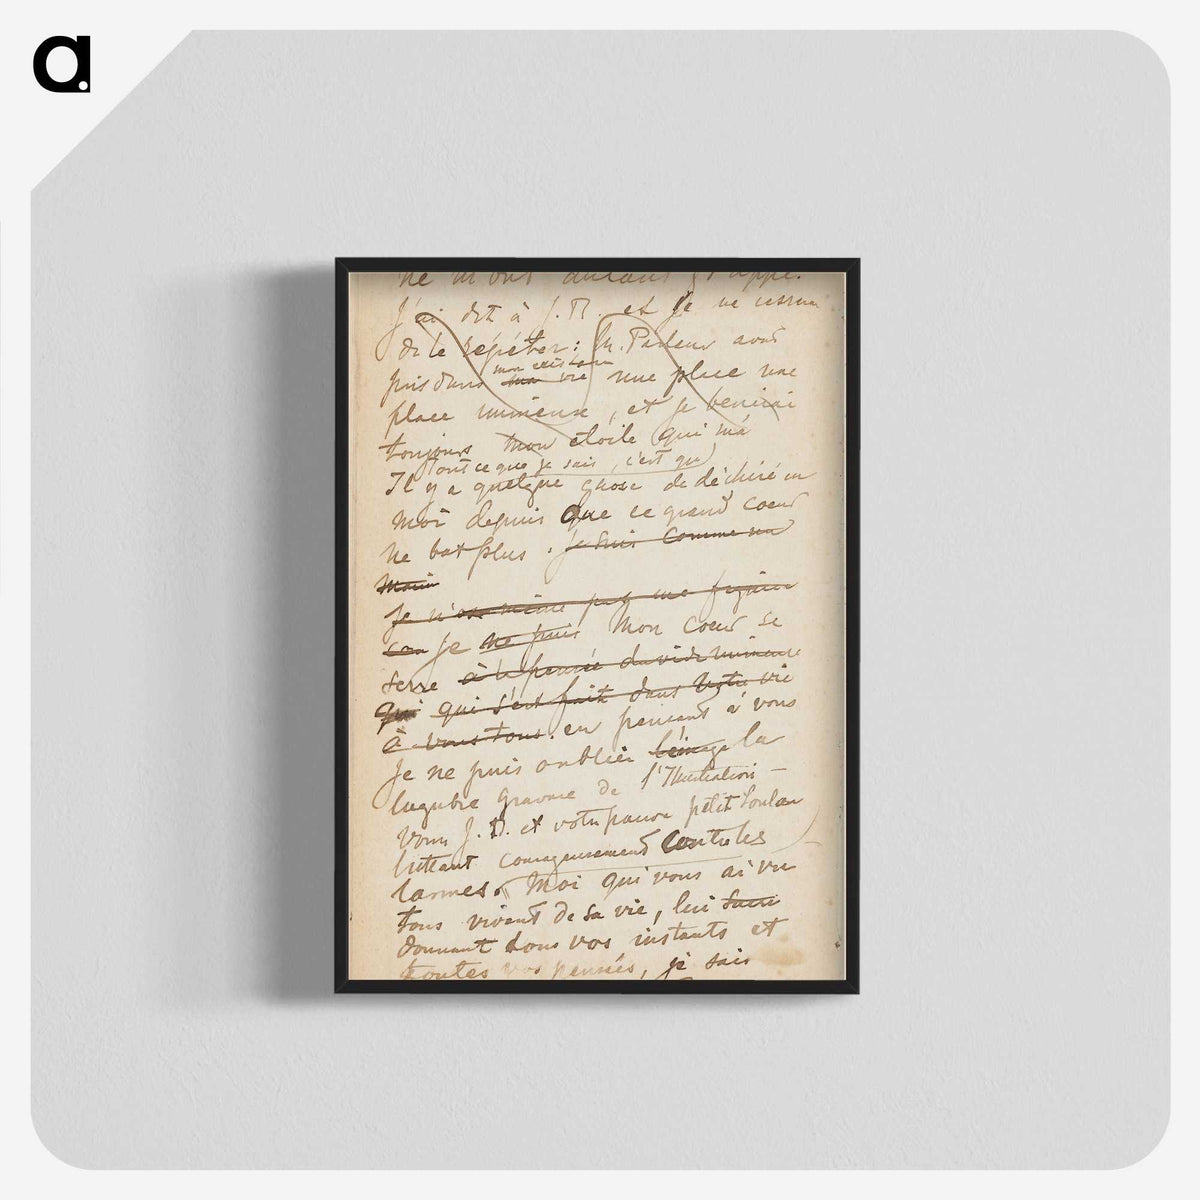 a.
ne m'ont autant frappé.
J'ai dit à J. B. et je ne cesserai
de le répéter : M. Pasteur avait
mon existence
pris dans ma vie une place une
place immense, et je bénirai
toujours mon étoile qui m'a
Tout ce que je sais, c'est qu'
Il y a quelque chose de déchiré en
moi depuis que ce grand coeur
ne bat plus. Je suis comme un
Je n'ose même pas me figurer
Je ne puis Mon coeur se
serre à la pensée du vide immense
qui qui s'est fait dans votre vie
à vous tous. en pensant à vous
Je ne puis oublier l'image la
lugubre gravure de l'Illustration —
Vous J. B. et votre pauvre petit Loulou
luttant courageusement contre les
larmes. Moi qui vous ai vu
tous vivant de sa vie, lui
donnant tous vos instants et
toutes vos pensées, je sais